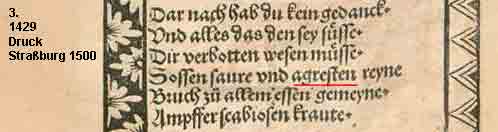 3.
1429
Druck
Straßburg 1500
Dar nach hab du kein gedanck·
Vnd alles das den sey süsse·
Dir verbotten wesen müsse·
Sossen saure vnd agresten reyne
Bruch zů allem essen gemeyne·
Ampffer scabiosen kraute·